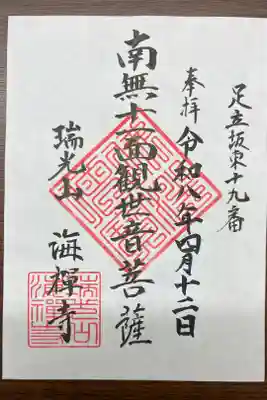 足立坂東十九番
奉拝
令和八年四月十二日
南無十一面観世音菩薩
瑞光山
海禅寺